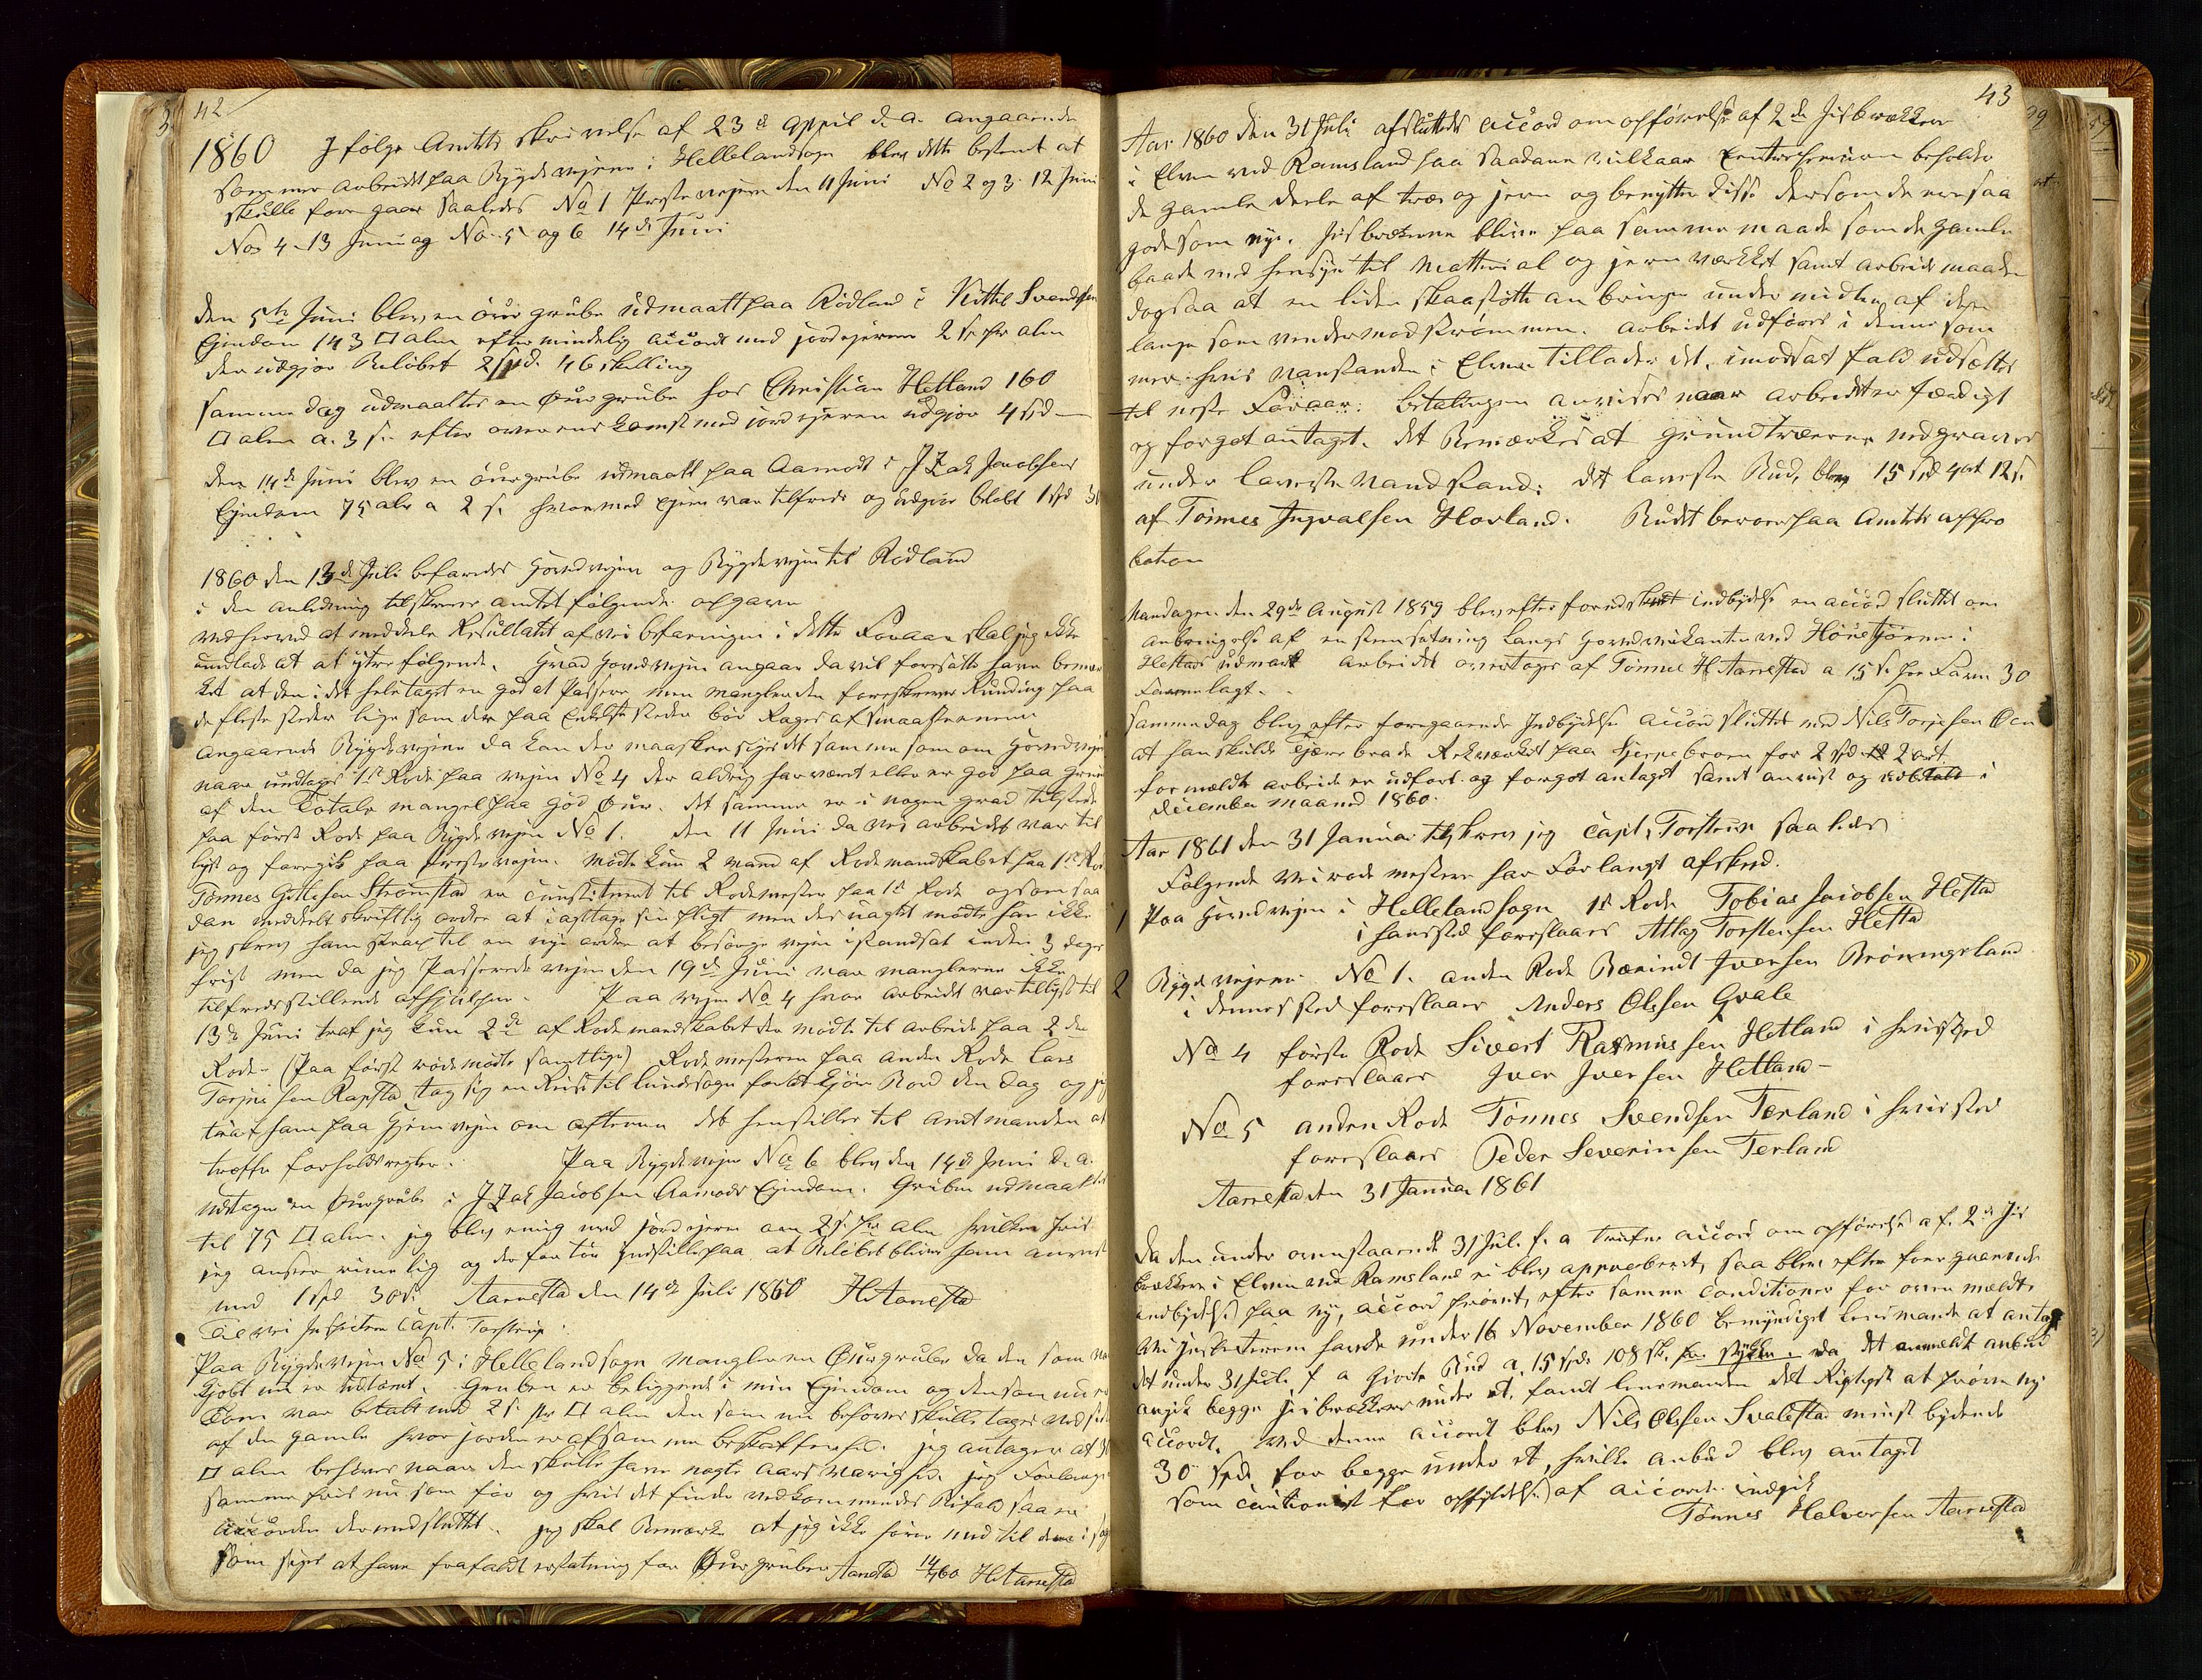 42
1860 Ifölge Amtets skrivelse af 23de April d. a. angaaende
sommer arbeidet paa Bygdeveiene i Hellelandsogn blev dette bestemt at
skulle foregaae saaledes No 1 Presteveien den 11 Juni No 2 og 3. 12 Juni
No 4 13 Juni og No 5 og 6 14de Juni
den 5te Juni blev en öurgrube udmaalt paa Rödland i Kittel Svendsens
Ejendom 143 □ alen efter mindelig accord med jordejeren 2 s. pr alen
der udgjör Belöbet 2 spd. 46 skilling
samme dag udmaaltes en Öurgrube hos Christian Hetland 160
□ alen a. 3 s. efter overenskomst med jordejeren udgjör 4 spd
den 14de Juni blev en öurgrube udmaalt paa Aamodt i Isak Jacobsens
Ejendom 75 alen a 2 s. hvormed ejeren var tilfreds og udgjör belöbet 1 spd 30
1860 den 13de Juli befaredes Hovedveien og Bygdeveien til Rödland
i den anledning tilskrevet amtet fölgende opgave
ved herved at meddele Resultatet af vei befaringen i dette Foraar skal jeg ikke
undlade at ytre fölgende. Hvad Hovedveien angaar da vil foresatte have bemær
ket at den i det hele taget er god at Passere men mangler den foreskrevne Runding paa
de fleste steder lige som der paa Enkelte steder bör Rages af smaastenene
Angaaende Bygdeveiene da kan der maaskee siges det samme som om Hovedveien
naar undtages 1ste Rode paa veien No 4 der aldrig har været eller er god paa grund
af den Totale mangel paa god Öur. det samme er i nogen grad tilstede
paa förste Rode paa Bygdeveien No 1. den 11 Juni da vei arbeidet var til
lyst og foregik paa Presteveien. mödte kun 2 mand af Rodemandskabet paa 1ste Rode
Tönnes Gitlesen Strömstad er constitueret til Rodemester paa 1ste Rode og som saa
dan meddelt skriftlig ordre at iagttage sin pligt men des uagtet mödte han ikke
jeg skrev ham strax til en ny ordre at besörge veien istandsat inden 3 dages
frist men da jeg Passerede veien den 19de Juni var manglerne ikke
tilfredsstillende afhjulpne. Paa veien No 4 hvor arbeidet var tillyst til
13de Juni traf jeg kun 2de af Rodemandskabet der mödte til arbeide paa 2den
Rode (Paa förste rode mödte samtlige) Rodemesteren paa anden Rode Lars
Torjussen Rapstad tog sig en Reise til Lundesogn for at kjöre Bord den dag og jeg
traf ham paa Hjemveien om aftenen det henstilles til Amtmanden at
træffe forholdsregler. Paa Bygdeveien No 6 blev den 14de Juni d. a.
udtaget en Öurgrube i Isak Jacobsen Aamodts Ejendom. Gruben udmaaltes
til 75 □ alen. jeg blev enig med jordejeren om 2 s. pr alen hvilken Pris
jeg anseer rimelig og derfor tör indstille paa at Belöbet bliver ham anvist
med 1 spd 30 s. Aarrestad den 14de Juli 1860 HAarrestad
Til vei Inspecteur Capt. Torstrup
Paa Bygdeveien No 5 i Hellelandsogn mangler en Öurgrube da den som var
kjöbt nu er udtömt. Gruben er beliggende i min Ejendom og den som nu er
tom var betalt med 2 s. pr □ alen den som nu behöves skulle tages ved siden
af den gamle hvor jorden er af samme beskaffenhed. jeg antager at 30
□ alen behöves naar den skulle have nogle Aars varighed. jeg Forlanger
samme Pris nu som för og hvis det finder vedkommendes Bifald saa er
accorden dermed sluttet. jeg skal Bemærke at jeg ikke hörer med til dem i sogn
som siges at have frafaldt erstatning for Öurgruber Aarrestad 14/7 60 HAarrestad
43
Aar 1860 den 31 Juli afsluttedes accord om opförelse af 2de Jisbrækker
i Elven ved Ramsland paa saadanne vilkaar Entreprenuren beholder
de gamle dele af træ og jern og benytter disse dersom de ere saa
gode som nye. Jisbrækerne bliver paa samme maade som de gamle
baade med hensyn til Matterial og jernværket samt arbeidsmaaden
dog saa at en liden skaastötte anbringes under midten af den
lange som vender mod strömmen. arbeidet udföres i denne som
mer hvis vanstanden i Elven tillader det, i modsat fald udsættes
til neste Foraar. betalingen anvises naar arbeidet er færdigt
og forgot antaget. det Bemærkes at grundtræerne nedgraves
under laveste vandstand: det laveste Bud, blev 15 spd 4 ort 12 s.
af Tönnes Ingvalsen Hovland. Budet beroer paa Amtets appro
bation
Mandagen den 29de August 1859 blev efter forudskeet indbydelse en accord sluttet om
anbringelse af en steensætning langs hovedveikanten ved Hönetjörnen i
Hestad udmark arbeidet overtoges af Tönnes HAarrestad a 15 s. pr Favn 30
Favne lagt.
samme dag blev efter foregaaende Indbydelse accord sluttet med Nils Torjesen Öen
at han skulde tjærebræde Rekværket paa Gjerpebroen for 2 spd 2 ort
formeldte arbeide er udfört og forgot antaget samt anvist og udbetalt i
december maaned 1860.
Aar 1861 den 31 Januar tilskrev jeg Capt. Torstrup saaledes
Fölgende veirodemestere har Forlangt afsked.
1 Paa Hovedveien i Hellelandsogn 1ste Rode Tobias Jacobsen Hestad
i hans sted foreslaaes Attag Torstensen Hestad
2 Bygdeveiene No 1. anden Rode Berendt Iversen Bröningsland
i dennes sted foreslaaes Anders Olsen Qvale
No 4 förste Rode Sivert Rasmussen Hetland i hvis sted
foreslaaes Iver Iversen Hetland
No 5 anden Rode Tönnes Svendsen Terland i hvis sted
foreslaaes Peder Severinsen Terland
Aarrestad den 31 Januar 1861
Da den under ovenstaaende 31 Juli f. a. trufne accord om opförelse af 2de Jis
brækker i Elven ved Ramsland ei blev approberet, saa blev efter foregaaende
indbydelse paa ny, accord prövet, efter samme conditioner for ovenmeldte
Vei Inspecteuren havde under 16 November 1860 bemyndiget lensmanden at antage
det under 31 Juli f a Givne Bud a. 15 spd 108 sk. pr stykke. da det anmeldte anbud
angik begge Jisbrækkerne under et, fandt lensmanden det Rigtigst at pröve ny
accord. ved denne accord blev Nils Olsen Svalestad minst bydende
30 spd for begge under et, hvilke anbud blev antaget
som cautionist for opfyldelse af accorden indgik
Tönnes Halvorsen Aarrestad